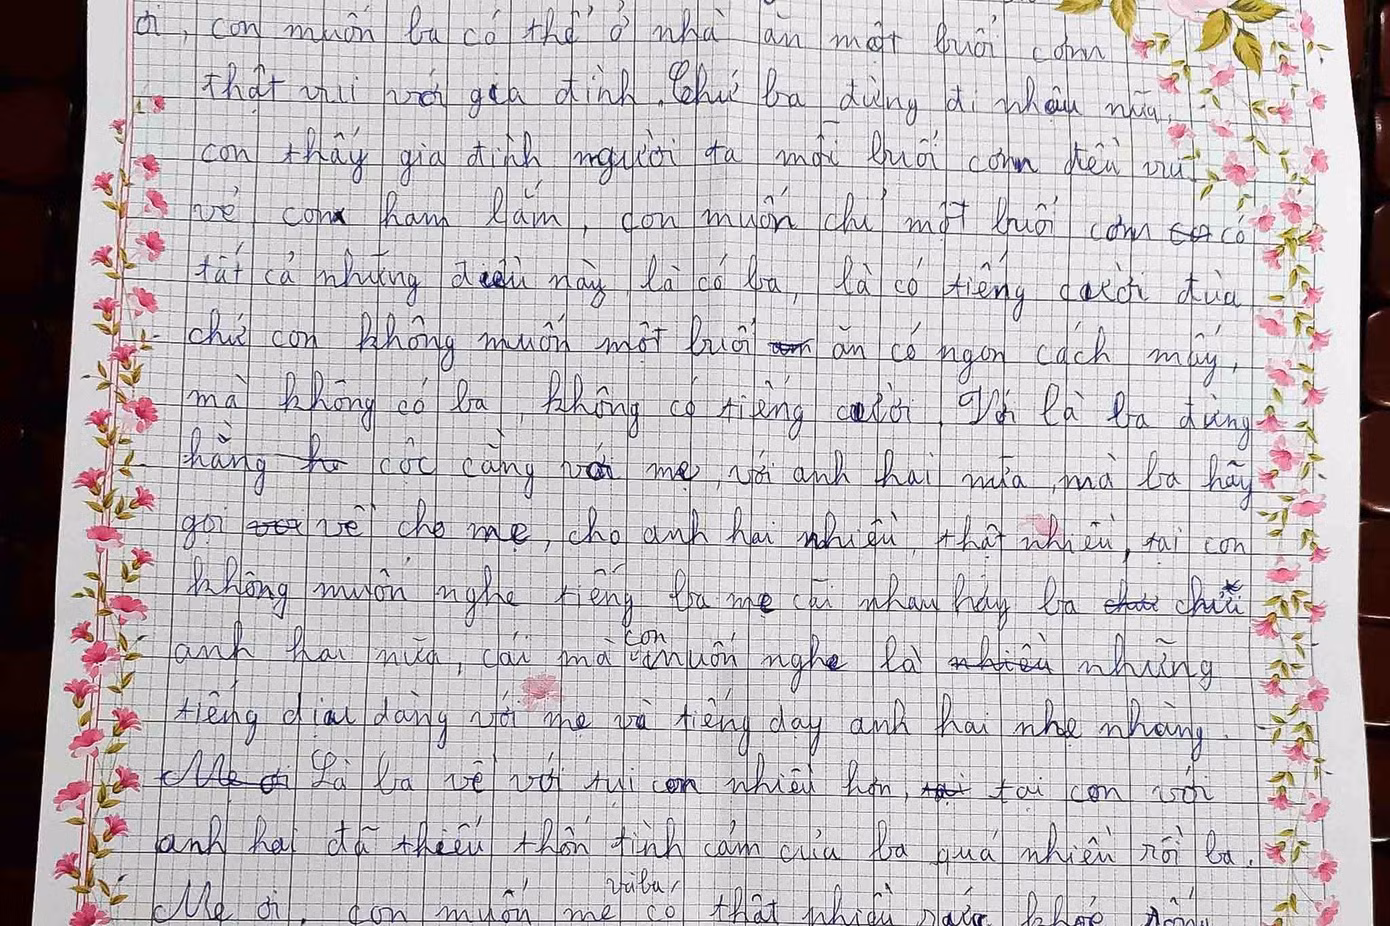 ơi, con muốn ba có thể ở nhà ăn một buổi cơm
thật vui với gia đình. Chứ ba đừng đi nhậu nữa,
con thấy gia đình người ta mỗi buổi cơm đều vui
vẻ con ham lắm, con muốn chỉ một buổi cơm có
tất cả những điều này là có ba, là có tiếng cười đùa
chứ con không muốn một buổi ăn có ngon cách mấy,
mà không có ba, không có tiếng cười. Với là ba đừng
hằng cộc cằng với mẹ, với anh hai nữa, mà ba hãy
gọi về cho mẹ, cho anh hai nhiều, thật nhiều, tại con
không muốn nghe tiếng ba mẹ cãi nhau hay ba chửi
anh hai nữa, cái mà con muốn nghe là những
tiếng dịu dàng với mẹ và tiếng dạy anh hai nhẹ nhàng.
Là ba về với tụi con nhiều hơn, tại con với
anh hai đã thiếu thốn tình cảm của ba quá nhiều rồi ba.
Mẹ ơi, con muốn mẹ và ba có thật nhiều sức khỏe